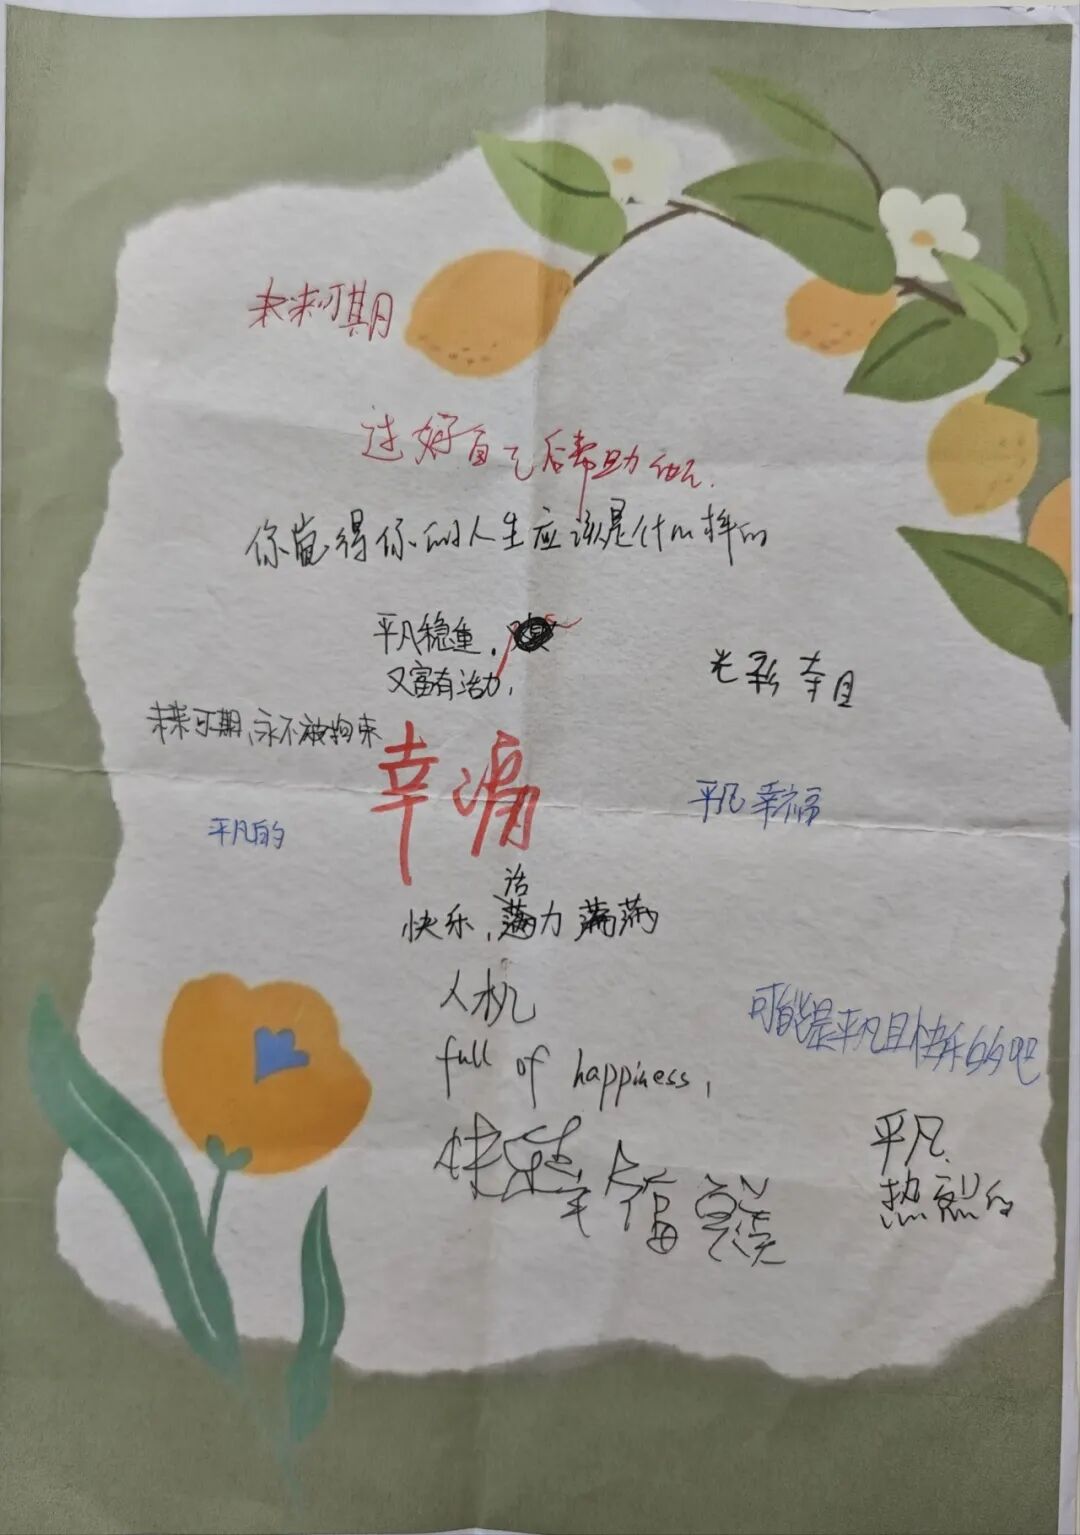 未来可期
过好自己后帮助他人.
你觉得你的人生应该是什么样的
平凡稳重.
又富有活力,
光彩夺目
未来可期,永不被拘束
幸福
平凡幸福
平凡的
快乐,活力满满
人机
full of happiness,
可能是平凡且快乐的吧
平凡.
热烈的